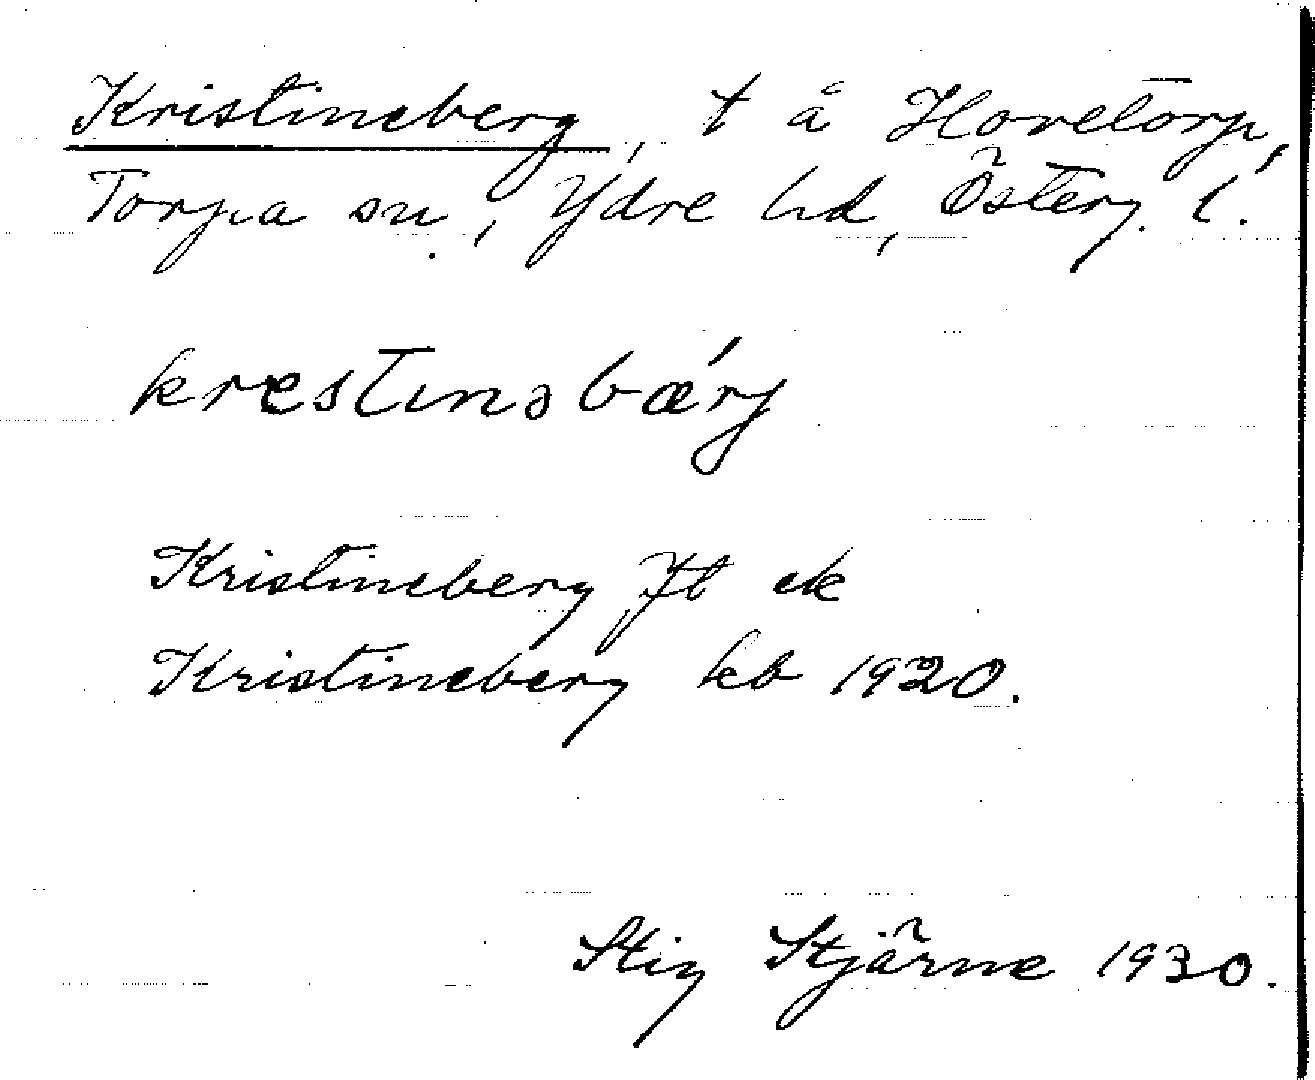 Kristineberg, t å Hovetorp,
Torpa sn, Ydre hd, Österg. l.
krestinəbærj
Kristineberg Jt ek
Kristineberg kb 1920.
Stig Stjärne 1930.